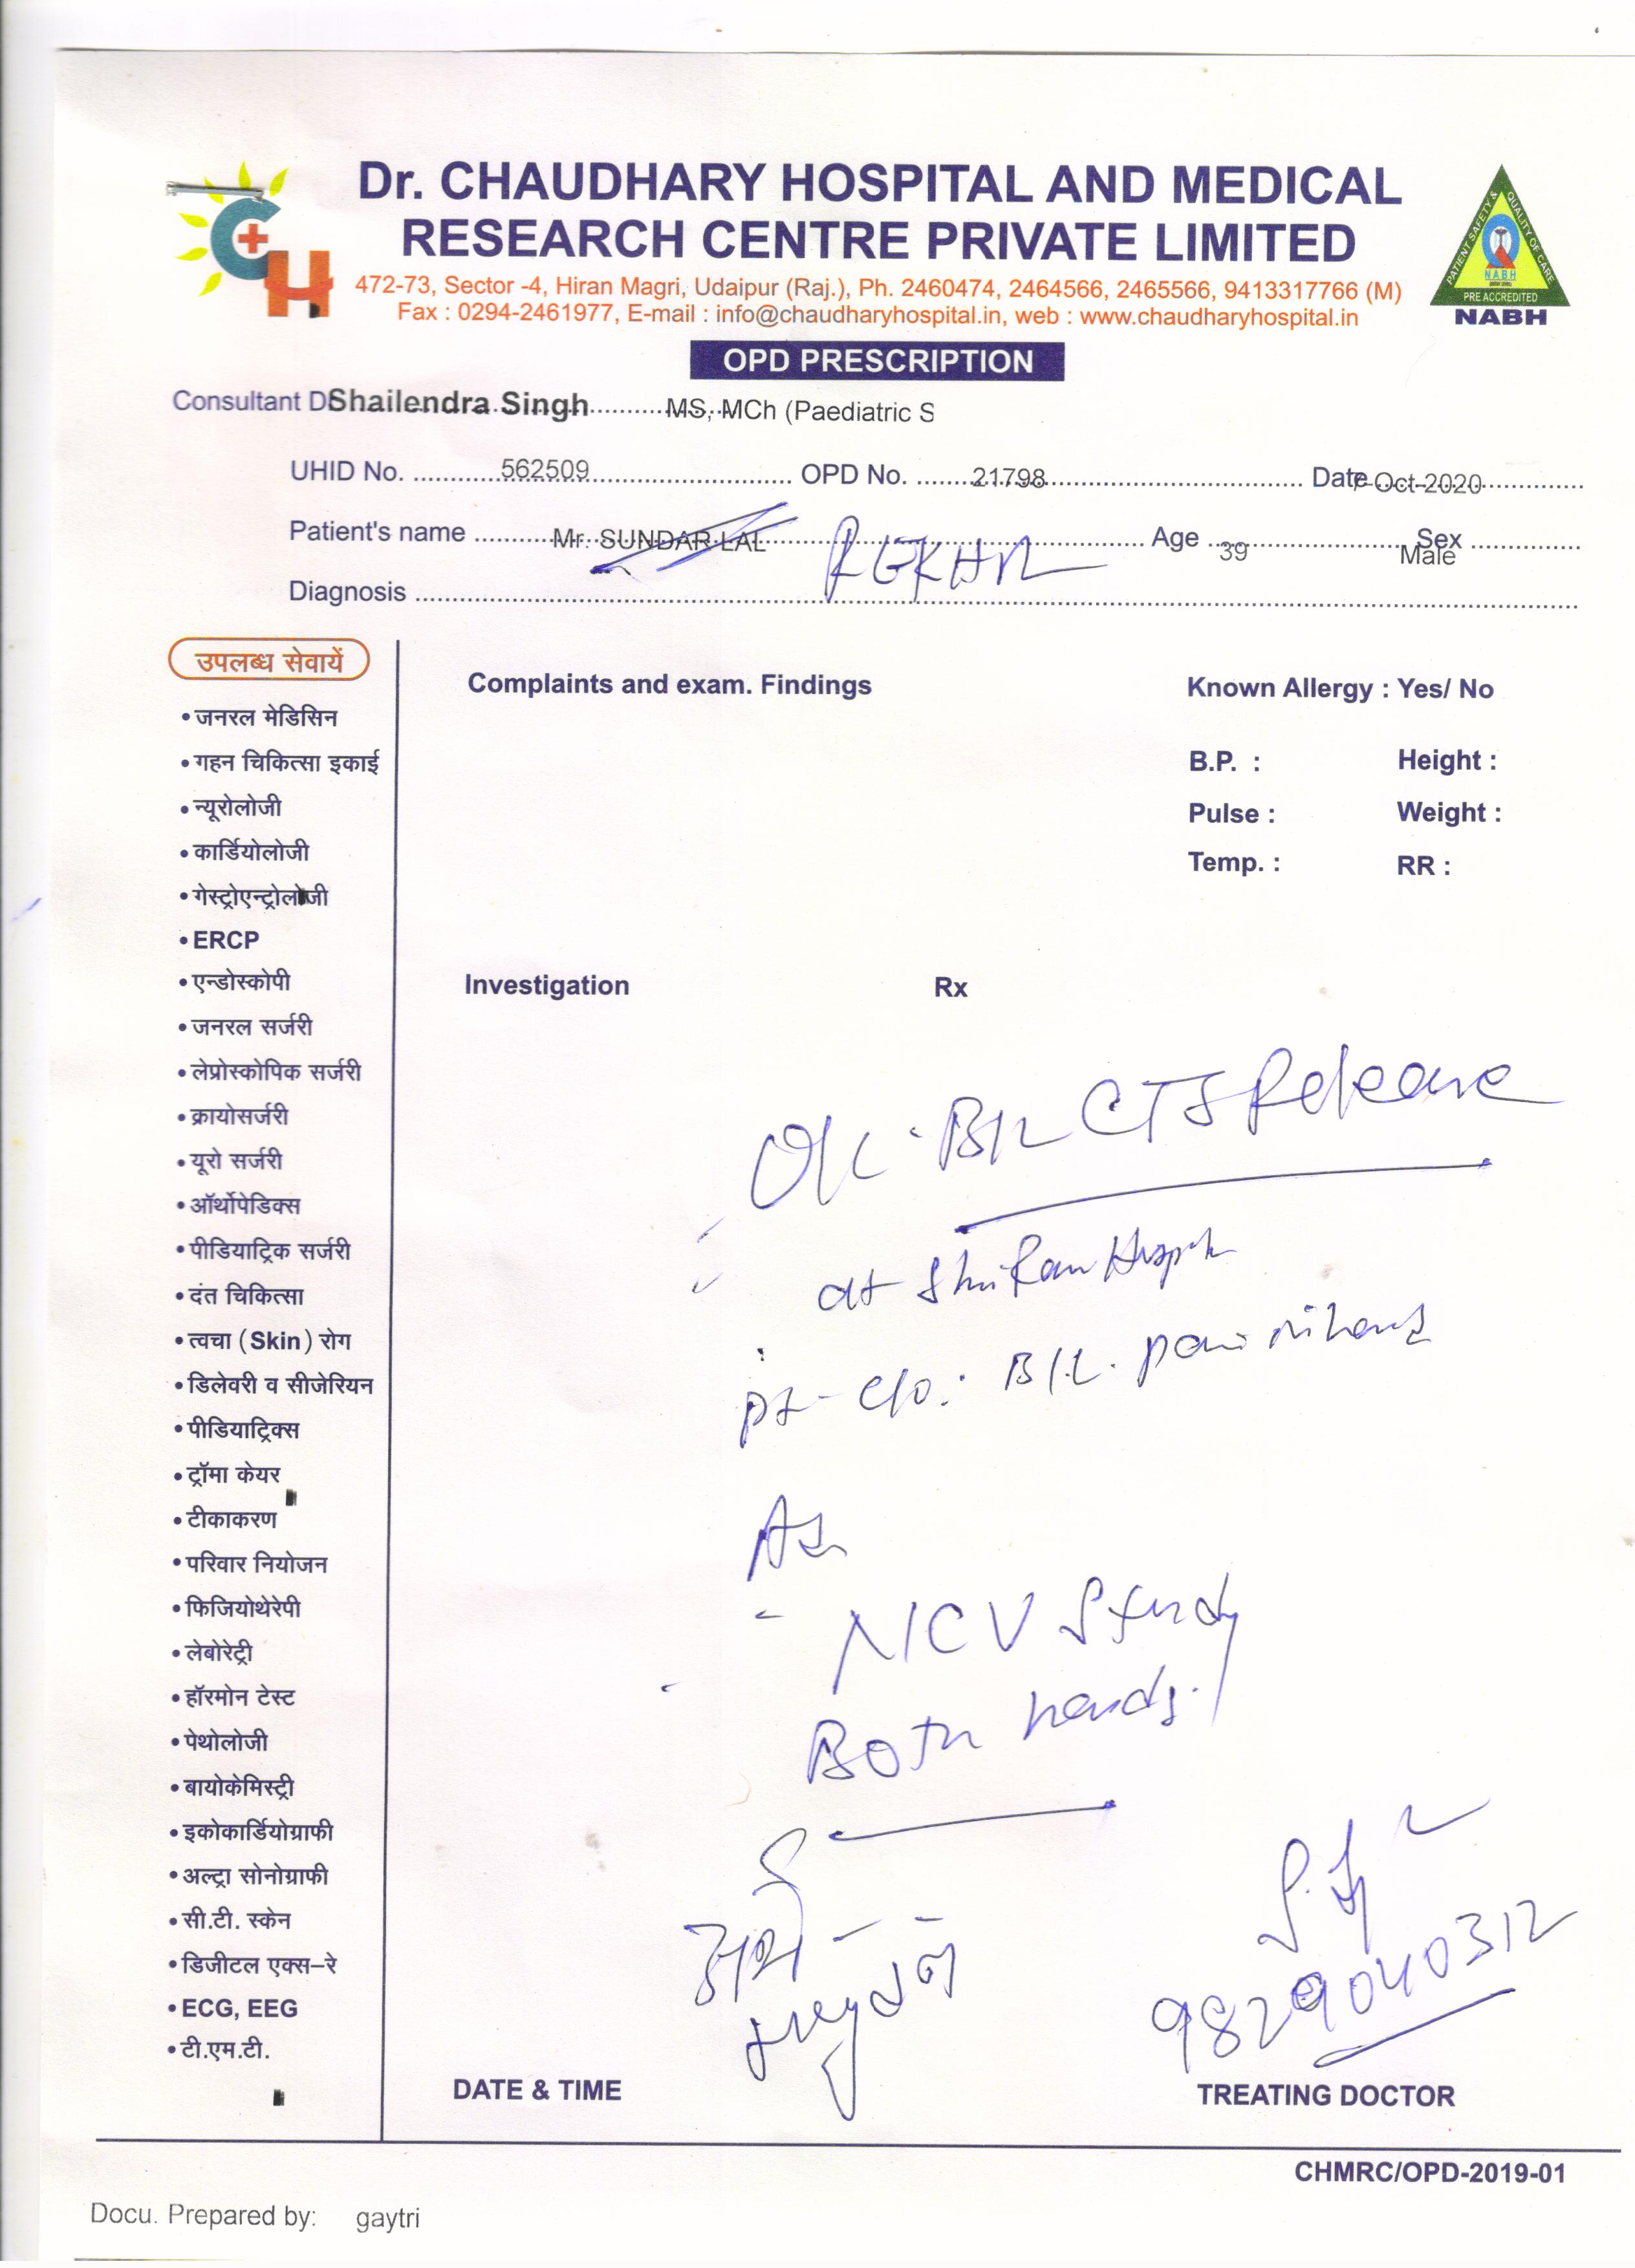 Dr. CHAUDHARY HOSPITAL AND MEDICAL
RESEARCH CENTRE PRIVATE LIMITED
472-73, Sector -4, Hiran Magri, Udaipur (Raj.), Ph. 2460474, 2464566, 2465566, 9413317766 (M)
Fax : 0294-2461977, E-mail : info@chaudharyhospital.in, web : www.chaudharyhospital.in
PATIENT SAFETY & QUALITY OF CARE
NABH
PRE ACCREDITED
NABH
OPD PRESCRIPTION
Consultant D Shailendra Singh MS, MCh (Paediatric S
UHID No. 562509 OPD No. 21798 Date Oct-2020
Patient's name Mr. SUNDAR LAL REKHA Age 39 Sex Male
Diagnosis
उपलब्ध सेवायें
• जनरल मेडिसिन
• गहन चिकित्सा इकाई
• न्यूरोलोजी
• कार्डियोलोजी
• गेस्ट्रोएन्ट्रोलोजी
• ERCP
• एन्डोस्कोपी
• जनरल सर्जरी
• लेप्रोस्कोपिक सर्जरी
• क्रायोसर्जरी
• यूरो सर्जरी
• ऑर्थोपेडिक्स
• पीडियाट्रिक सर्जरी
• दंत चिकित्सा
• त्वचा (Skin) रोग
• डिलेवरी व सीजेरियन
• पीडियाट्रिक्स
• ट्रॉमा केयर
• टीकाकरण
• परिवार नियोजन
• फिजियोथेरेपी
• लेबोरेट्री
• हॉरमोन टेस्ट
• पेथोलोजी
• बायोकेमिस्ट्री
• इकोकार्डियोग्राफी
• अल्ट्रा सोनोग्राफी
• सी.टी. स्केन
• डिजीटल एक्स–रे
• ECG, EEG
• टी.एम.टी.
Complaints and exam. Findings
Known Allergy : Yes/ No
B.P. : Height :
Pulse : Weight :
Temp. : RR :
Investigation Rx
B/L CTS Release
at Shri Ram
pt - c/o. B/L. pain in hand
NCV Study
Both hands.
9829040312
DATE & TIME
TREATING DOCTOR
CHMRC/OPD-2019-01
Docu. Prepared by: gaytri